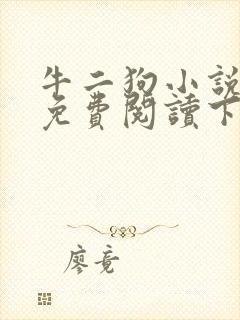 牛二狗小說
免費閱讀下
廖竟